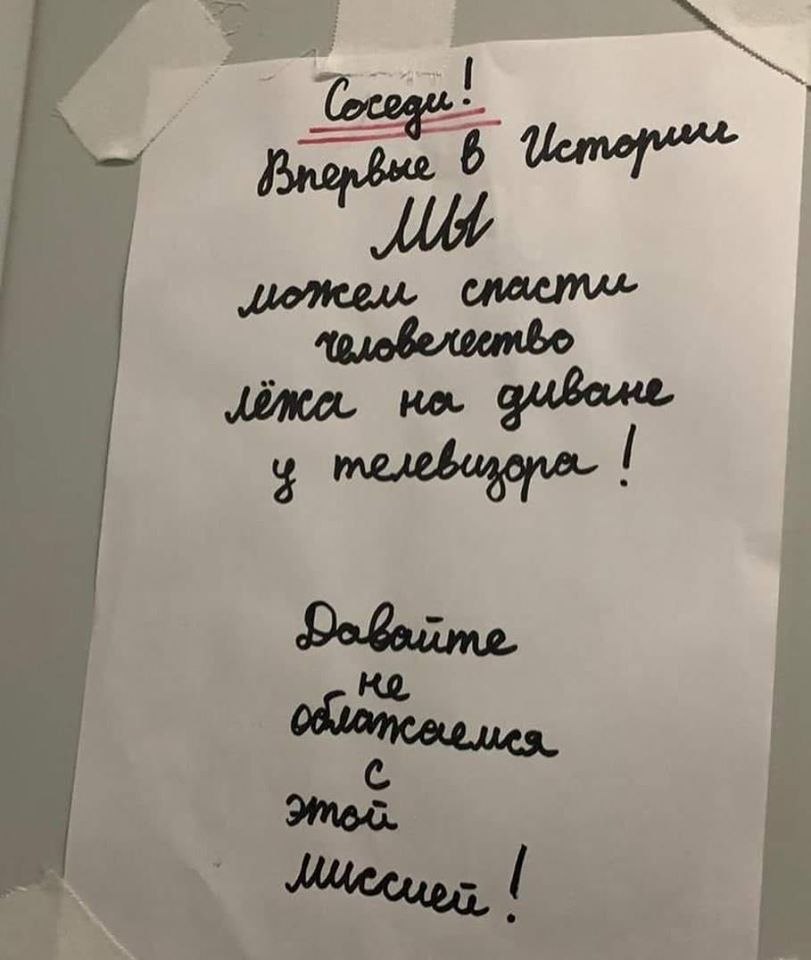 Соседи!
Впервые в Истории
МЫ
можем спасти
человечество
лёжа на диване
у телевизора!
Давайте
не
облажаемся
с
этой
миссией!